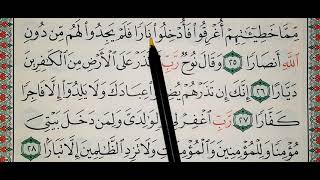 مِّمَّا خَطِيٓـَٰٔتِهِمْ أُغْرِقُوا۟ فَأُدْخِلُوا۟ نَارًا فَلَمْ يَجِدُوا۟ لَهُم مِّن دُونِ
ٱللَّهِ أَنصَارًا ٢٥ وَقَالَ نُوحٌ رَّبِّ عَلَى ٱلْأَرْضِ مِنَ ٱلْكَٰفِرِينَ
دَيَّارًا ٢٦ إِنَّكَ إِن تَذَرْهُمْ عِبَادَكَ وَلَا يَلِدُوٓا۟ إِلَّا فَاجِرًا
كَفَّارًا ٢٧ رَّبِّ ٱغْفِرْ لِى وَلِوَٰلِدَىَّ وَلِمَن دَخَلَ بَيْتِىَ
مُؤْمِنًا وَلِلْمُؤْمِنِينَ وَٱلْمُؤْمِنَٰتِ وَلَا تَزِدِ ٱلظَّٰلِمِينَ إِلَّا تَبَارًۢا ٢٨